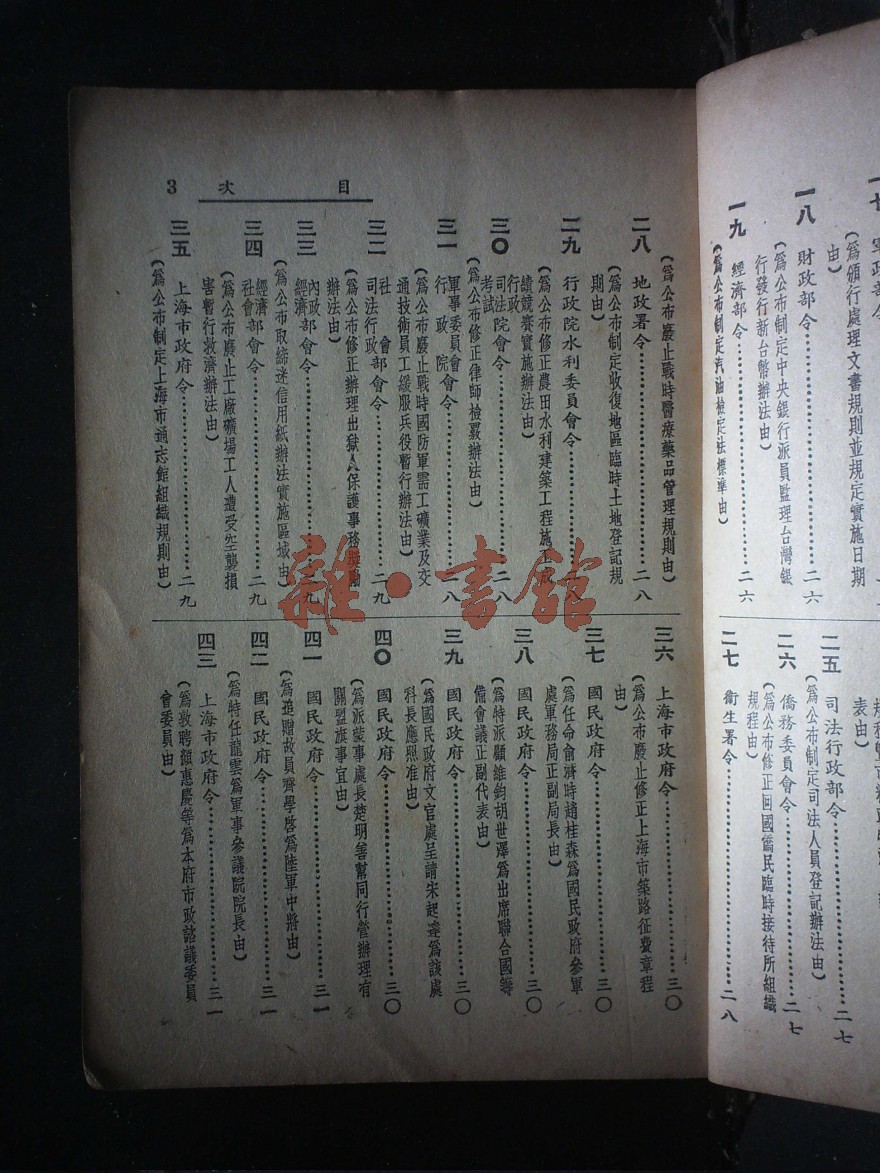 一七 軍政部令
(爲頒行處理文書規則並規定實施日期
由)
一八 財政部令………二六
(爲公布制定中央銀行派員監理台灣銀
行發行新台幣辦法由)
一九 經濟部令………二六
(爲公布制定汽油檢定法標準由)
表由)
二五 司法行政部令………二七
(爲公布制定司法人員登記辦法由)
二六 僑務委員會令………二七
(爲公布修正回國僑民臨時接待所組織
規程由)
二七 衞生署令………二八
目次 3
(爲公布廢止戰時醫療藥品管理規則由)
二八 地政署令………二八
(爲公布制定收復地區臨時土地登記規
則由)
二九 行政院水利委員會令………二八
(爲公布修正農田水利建築工程施工成
績競賽實施辦法由)
三〇 行政司法院會令………二八
考試
(爲公布修正律師檢覈辦法由)
三一 軍事委員會會令………二八
行政院
(爲公布廢止戰時國防軍需工礦業及交
通技術員工緩服兵役暫行辦法由)
三二 社會部會令………二九
司法行政
(爲公布修正辦理出獄人保護事務獎勵
辦法由)
三三 內政部會令………二九
經濟
(爲公布取締迷信用紙辦法實施區域由)
三四 經濟部會令………二九
社會
(爲公布廢止工廠礦場工人遭受空襲損
害暫行救濟辦法由)
三五 上海市政府令………二九
(爲公布制定上海市通志館組織規則由)
三六 上海市政府令………三〇
(爲公布廢止修正上海市築路征費章程
由)
三七 國民政府令………三〇
(爲任命俞濟時趙桂森爲國民政府參軍
處軍務局正副局長由)
三八 國民政府令………三〇
(爲特派顧維鈞胡世澤爲出席聯合國籌
備會議正副代表由)
三九 國民政府令………三〇
(爲國民政府文官處呈請朱起遂爲該處
科長應照准由)
四〇 國民政府令………三〇
(爲派蒙事處長楚明善幫同行營辦理有
關盟旗事宜由)
四一 國民政府令………三一
(爲追贈故員齊學啓爲陸軍中將由)
四二 國民政府令………三一
(爲特任龍雲爲軍事參議院院長由)
四三 上海市政府令………三一
(爲敦聘顏惠慶等爲本府市政諮議委員
會委員由)
雜·書館